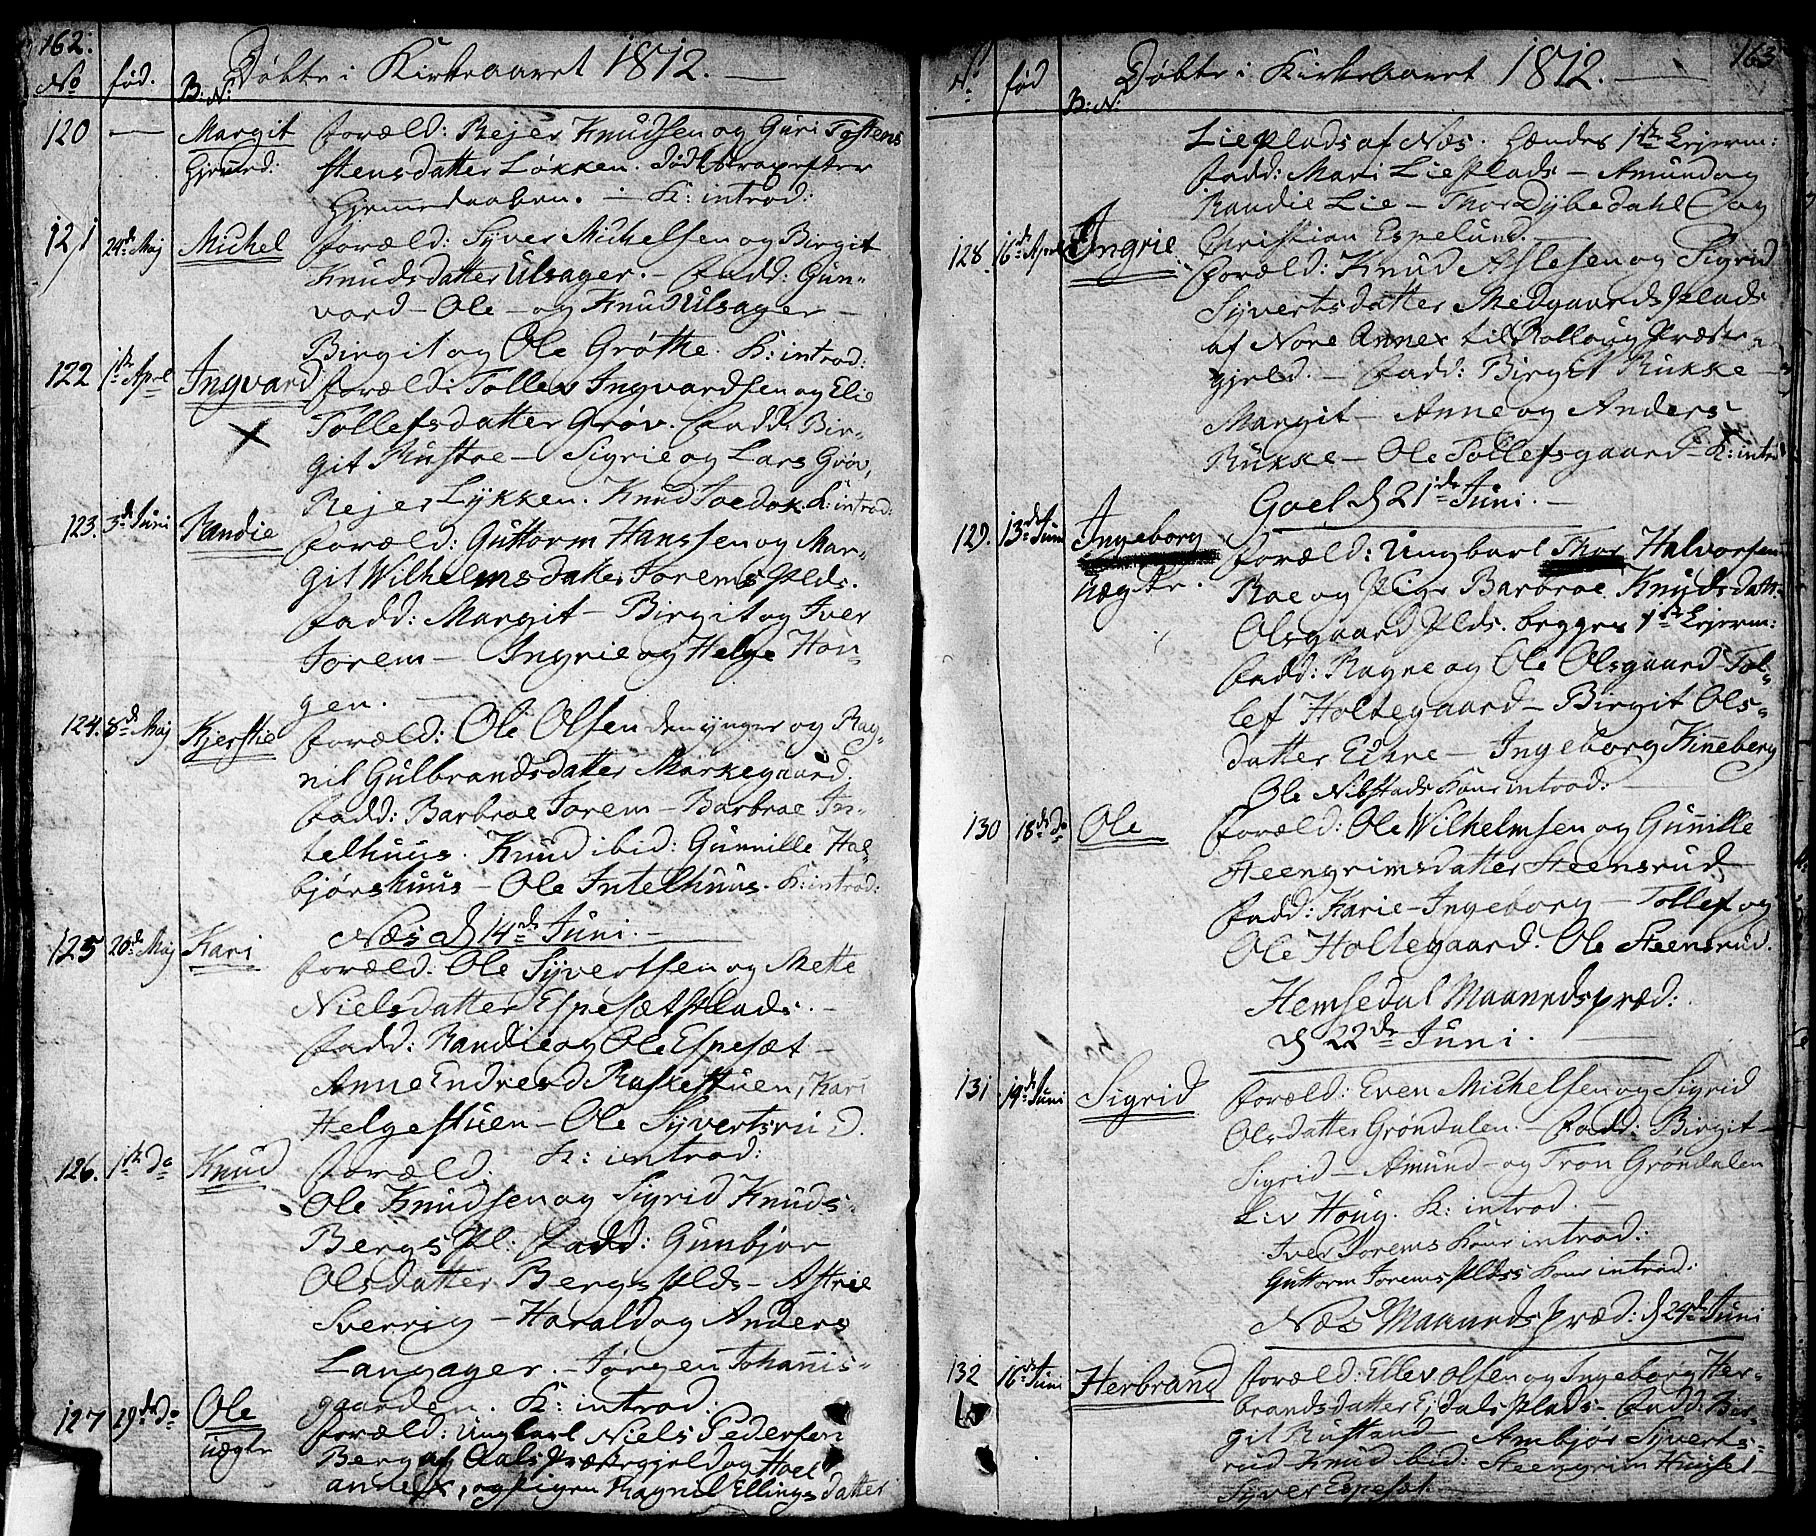 162.
No
fød.
B: N:
Døbte i Kirkeaaret 1812. —
120 — Margit Foræld: Rejer Knudsen og Guri Tostens
Hjemmed: stensdatter Løkken. død strax efter
Hjemmedaaben. — K: introd:
121 24de Maj Michel Foræld: Syver Michelsen og Birgit
Knudsdatter Ulsager. — Fadd: Gun-
vord — Ole — og Knud Ulsager —
Birgit og Ole Grøthe. K: introd:
122 1ste April Ingvard Foræld: Tollev Ingvardsen og Elie
Tollefsdatter Grøv. Fadd: Bir-
git Rustoe — Sigrie og Lars Grøv,
Rejer Lykken. Knud Toedok. K: introd:
123. 3de Juni Randie Foræld: Guttorm Hanssen og Mar-
git Wilhelmsdatter Jorems Plds.
Fadd: Margit — Birgit og Iver
Jorem — Ingrie og Helge Hou-
gen. —
124. 8de Maj Kjerstie Foræld: Ole Olsen den ynger og Rag-
nil Gulbrandsdatter Markegaard.
Fadd: Barbroe Jorem — Barbroe In-
telhuus. Knud ibid: Gunnille Hal-
bjørshuus — Ole Intelhuus. K: introd:
Næs d 14de Juni. —
125 20de Maj Kari Foræld: Ole Syvertsen og Mette
Nielsdatter Espesæt Plads. —
Fadd: Randie og Ole Espesæt —
Anne Endresd Raskestuen, Kari
Helgestuen — Ole Syvertsrud.
126. 1ste do Knud Foræld. K: introd:
Ole Knudsen og Sigrid Knuds
Bergs Pl: Fadd: Gunbjør
Olsdatter Bergs Plds — Astrie
Sverrig — Harald og Anders
Langager. — Jørgen Johannis-
gaarden. K: introd:
127 29de do Ole Foræld: Ungkarl Niels Pedersen
uægte Berg af Aals Præstegjeld og Hoel
annex, og Pigen Ragnil Ellingsdatter
163
No
fød
B: N:
Døbte i Kirkeaaret 1812. —
Lie Plads af Næs. hændes 1ste Lejerm:
Fadd: Mari Lie Plads — Amund og
Randie Lie — Thor Dybedahl og
Christian Espelund. —
128. 16de April Ingrie Foræld: Knud Aslesen og Sigrid
Syvertsdatter Medgaards Plads
af Nore Annex til Rolloug Præste-
gjeld. — Fadd: Birgit Rukke —
Margit — Anne og Anders
Rukke — Ole Tollefsgaard — K: introd
Goel d 21de Juni. —
129. 13de Juni Ingeborg Foræld: Ungkarl Thor Halvorsen
uægte. Roe og Pige Barbroe Knudsdatt.
Olsgaard Plds. begges 1ste Lejerm:
Fadd: Ragne og Ole Olsgaard Tol-
lef Holtegaard — Birgit Ols-
datter Eikre — Ingeborg Kinneberg
Ole Nibstads Kone introd: —
130 18de do Ole Foræld: Ole Wilhelmsen og Gunille
Steengrimsdatter Steensrud
Fadd: Karie — Ingeborg — Tollef og
Ole Holtegaard. Ole Steensrud.
Hemsedal Maanedspræd:
d 22de Juni. —
131 19de Juni Sigrid Foræld: Even Michelsen og Sigrid
Olsdatter Grøndalen. — Fadd: Birgit —
Sigrid — Amund — og Tron Grøndalen
Liv Houg. K: introd. —
Iver Jorems Kone introd:
Guttorm Jorems Pldss Kone introd:
Næs Maanedspræd: d 24de Juni
132 16de Juni Herbrand Foræld: Ellev Olsen og Ingeborg Her-
brandsdatter Ejdals Plads. Fadd: Bir-
git Rustand — Ambjør Syverts-
rud — Knud ibid: Steengrim Huusel —
Syver Espeset. —